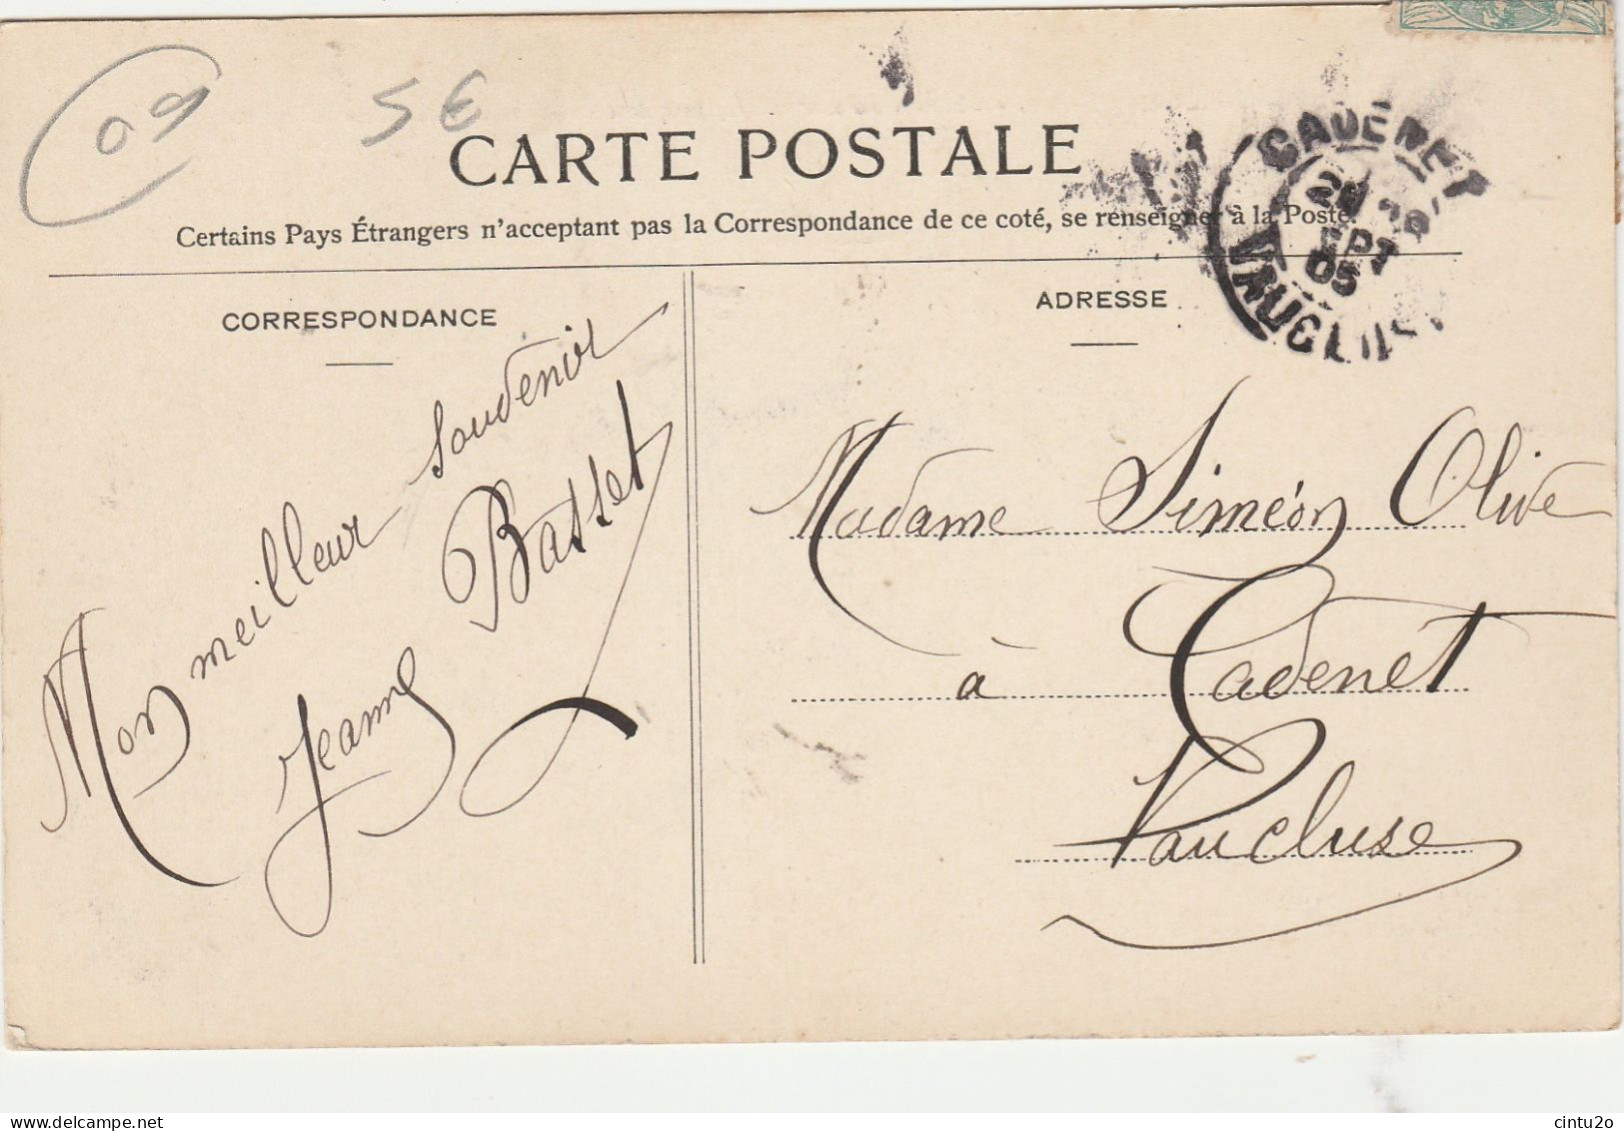 09
5 €
CARTE POSTALE
Certains Pays Étrangers n'acceptent pas la Correspondance de ce coté, se renseigner à la Poste.
CORRESPONDANCE
ADRESSE
CADENET
05
VAUCLUSE
Mon meilleur souvenir
Jeanne Basset
Madame Siméon Olive
à Cadenet
Vaucluse
delcampe.net
cintu2o